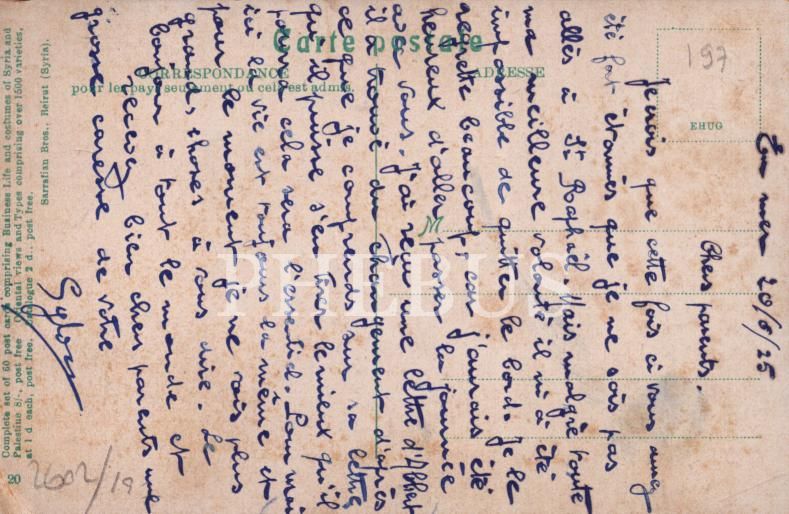 Carte postale
CORRESPONDANCE
ADRESSE
pour les pays seulement ou cela est admis.
197
EHUG
En mer 20/6/25
Chers parents.
Je crois que cette fois ci vous avez
été fort étonnés que je ne sois pas
allés à St Raphaël. Mais malgré toute
ma meilleure volonté il m'a été
impossible de quitter le bord. Je le
regrette beaucoup, car j'aurais été
heureux d'aller passer la journée
avec vous. J'ai reçu une lettre d'Albert
il a trouvé du changement d'après
ce que je comprends sur sa lettre,
qu'il puisse s'en tirer le mieux qu'il
pourra cela sera l'essentiel. Pour moi
ici la vie est toujours la même et
pour le moment je ne vois plus
grandes choses à vous dire. Le
bonjour à tout le monde et
recevez bien chers parents une
grosse caresse de votre
PHEBUS
Sarrafian Bros., Beirut (Syria).
Complete set of 60 post cards, comprising Business Life and costumes of Syria and
Palestine 8/-, post free. Oriental views and Types comprising over 1500 varieties,
at 1 d. each, post free. Catalogue 2 d., post free.
20
2602/19